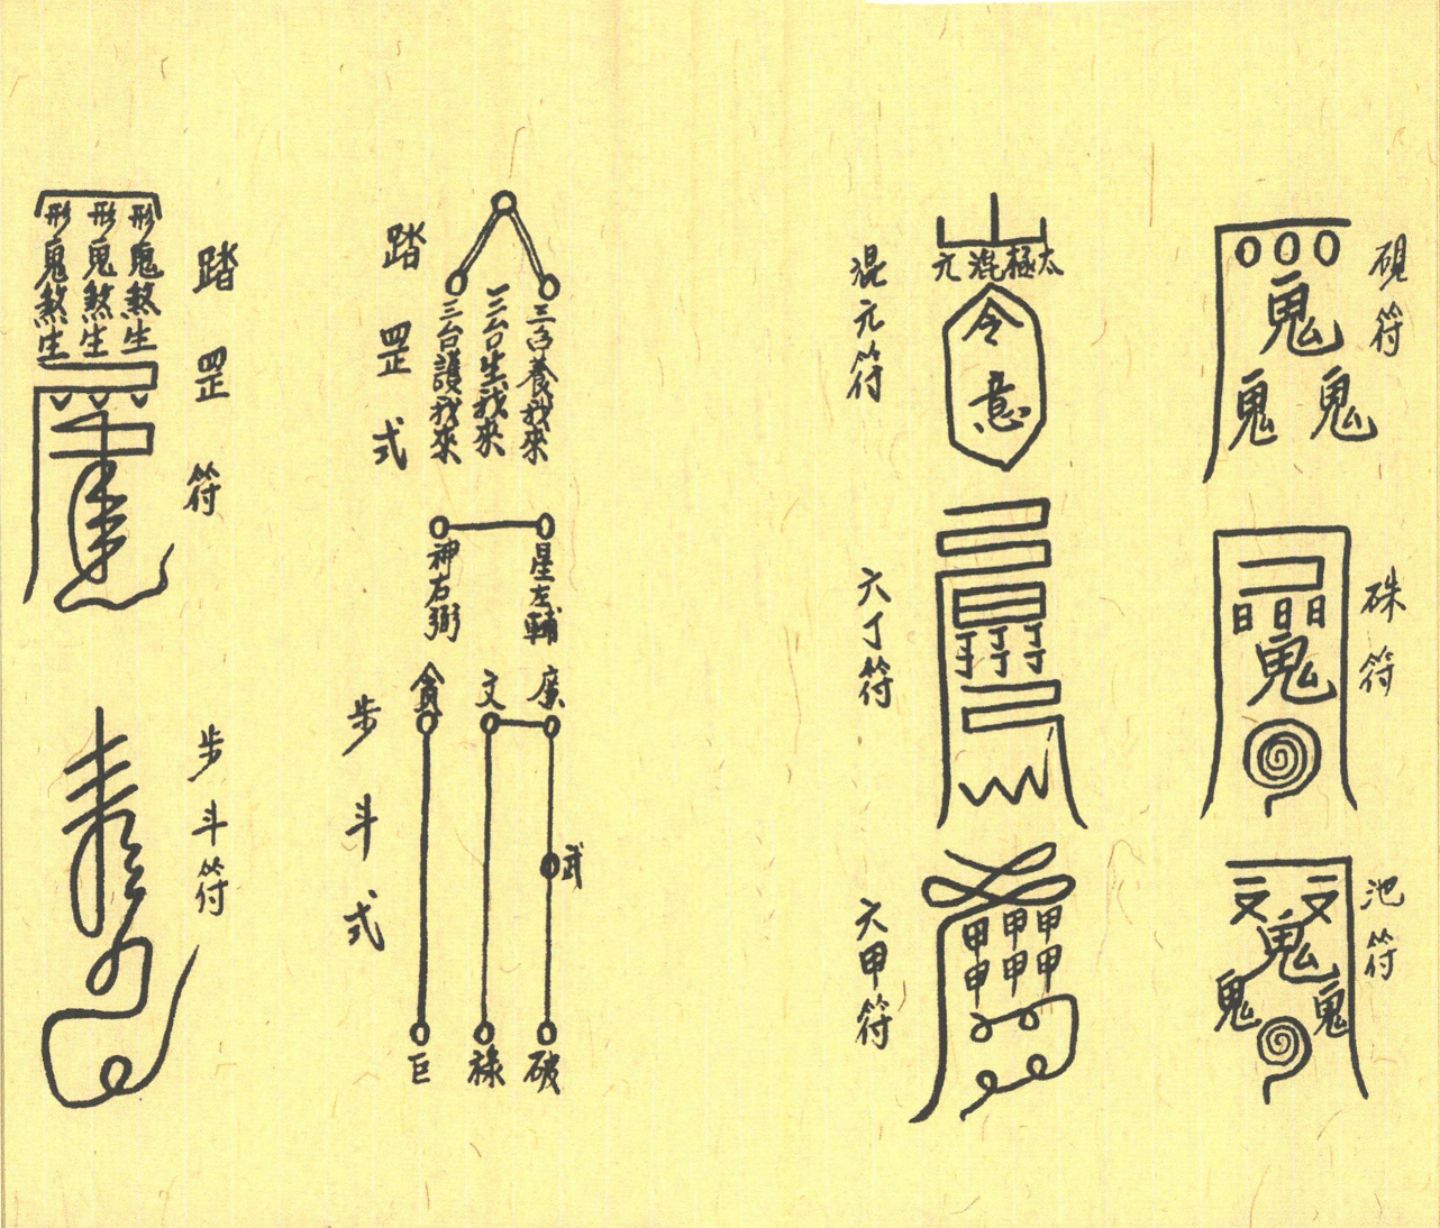 硯符
鬼
鬼 鬼
硃符
日日日
鬼
池符
鬼
鬼 鬼
混元符
太極混元
令
意
六丁符
丁丁丁
丁丁丁
六甲符
甲甲甲
甲甲甲
踏罡式
三台養我來
三台生我來
三台護我來
星左輔
神右弼
步斗式
廉
文
貪
武
破
祿
巨
踏罡符
形鬼煞生
形鬼煞生
形鬼煞生
步斗符